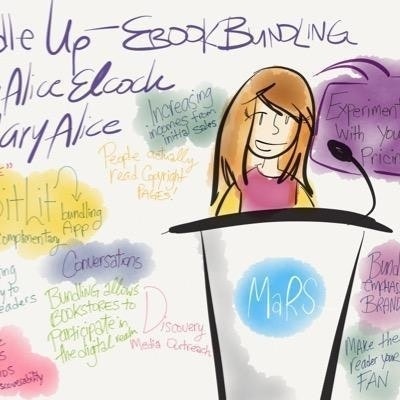 dle Up - EBOOK BUNDLING
Alice Elcock
Mary Alice
Increasing
incomes from
initial sales
Experiment
With You
Pricin
People actually
read Copyright
PAGES!
BitLit
bundling
App
complimentary
Conversations
Bundling allows
BOOKSTORES to
Participate in
the digital realm
Discovery
Media Outreach
MaRS
Bund
EMPHAS
BRAND
MAKE the
reader your
FAN
ing
y to
eaders
Discoverability